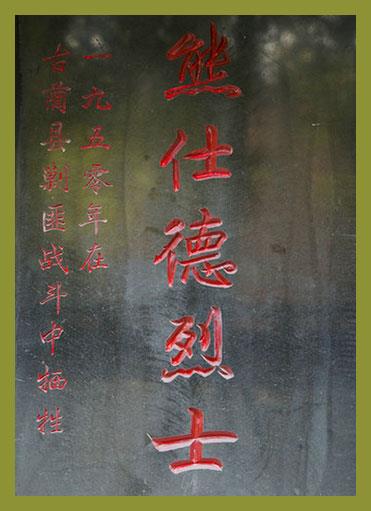 熊仕德烈士
一九五零年在
古蔺县剿匪战斗中牺牲